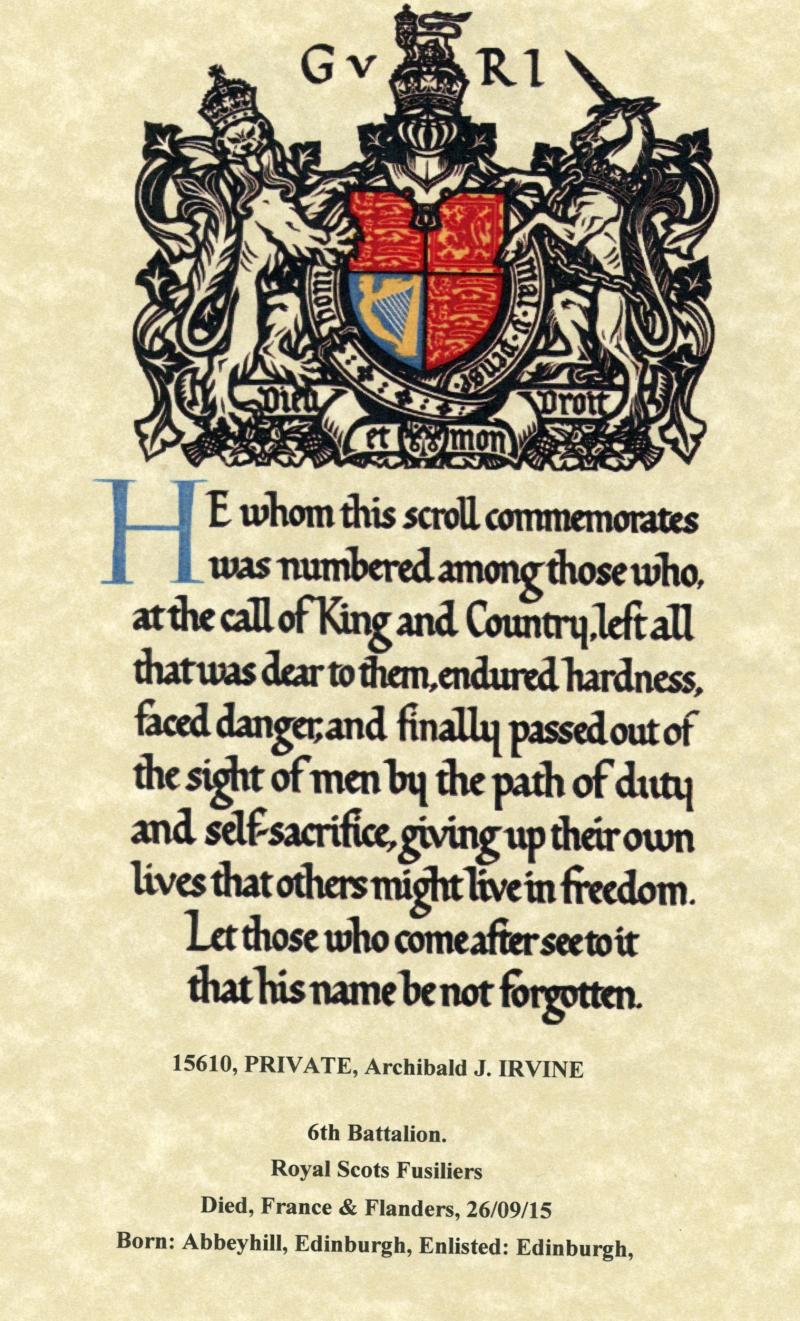 G V R I
mal·y·pense
Dieu Droit
et mon
HE whom this scroll commemorates
was numbered among those who,
at the call of King and Country, left all
that was dear to them, endured hardness,
faced danger, and finally passed out of
the sight of men by the path of duty
and self-sacrifice, giving up their own
lives that others might live in freedom.
Let those who come after see to it
that his name be not forgotten.
15610, PRIVATE, Archibald J. IRVINE
6th Battalion.
Royal Scots Fusiliers
Died, France & Flanders, 26/09/15
Born: Abbeyhill, Edinburgh, Enlisted: Edinburgh,